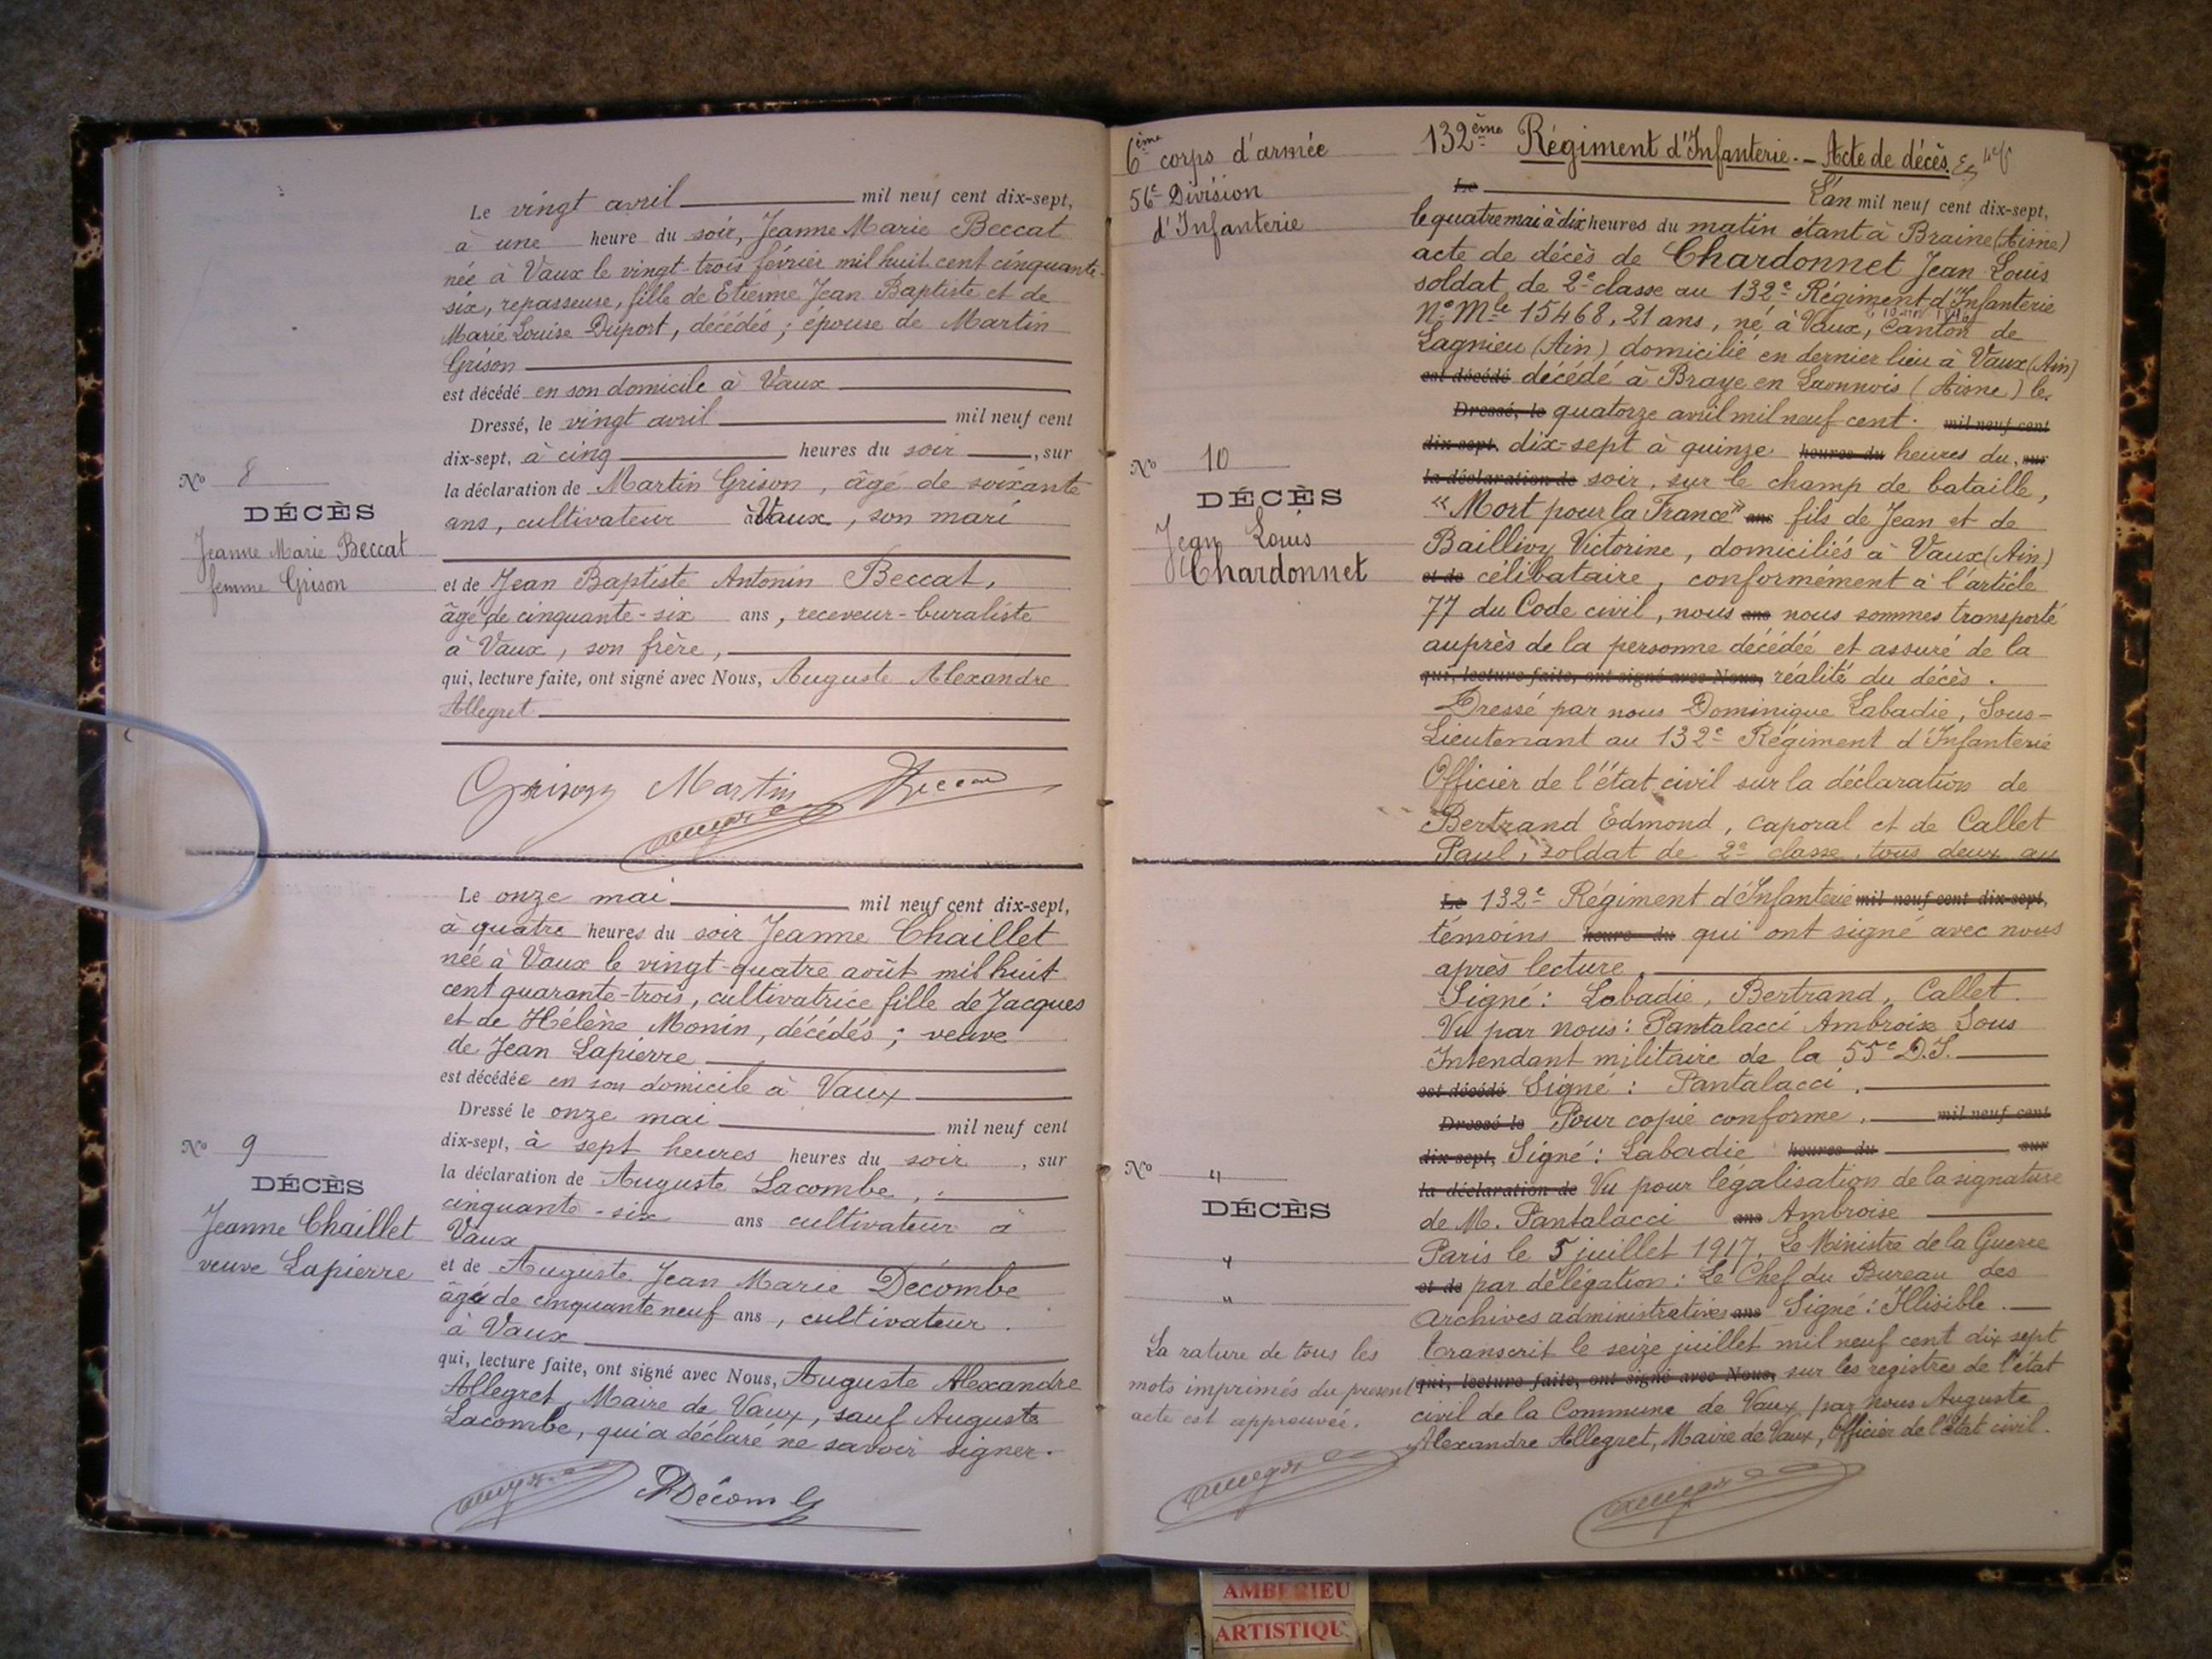 Le vingt avril mil neuf cent dix-sept,
à une heure du soir, Jeanne Marie Beccat
née à Vaux le vingt-trois février mil huit cent cinquante-
six, repasseuse, fille de Etienne Jean Baptiste et de
Marie Louise Duport, décédés ; épouse de Martin
Grison
est décédé en son domicile à Vaux
Dressé, le vingt avril mil neuf cent
dix-sept, à cinq heures du soir, sur
la déclaration de Martin Grison, âgé de soixante
ans, cultivateur à Vaux, son mari
et de Jean Baptiste Antonin Beccat,
âgé de cinquante-six ans, receveur-buraliste
à Vaux, son frère,
qui, lecture faite, ont signé avec Nous, Auguste Alexandre
Allegret
Grison Martin Beccat
No 8
DÉCÈS
Jeanne Marie Beccat
femme Grison
Le onze mai mil neuf cent dix-sept,
à quatre heures du soir Jeanne Chaillet
née à Vaux le vingt-quatre août mil huit
cent quarante-trois, cultivatrice fille de Jacques
et de Hélène Monin, décédés ; veuve
de Jean Lapierre
est décédée en son domicile à Vaux
Dressé le onze mai mil neuf cent
dix-sept, à sept heures heures du soir, sur
la déclaration de Auguste Lacombe,
cinquante-six ans cultivateur à
Vaux
et de Auguste Jean Marie Decombe
âgé de cinquante neuf ans, cultivateur
à Vaux
qui, lecture faite, ont signé avec Nous, Auguste Alexandre
Allegret, Maire de Vaux, sauf Auguste
Lacombe, qui a déclaré ne savoir signer.
Décomb
No 9
DÉCÈS
Jeanne Chaillet
veuve Lapierre
6ème corps d'armée
56e Division
d'Infanterie
132ème Régiment d'Infanterie. - Acte de décès.
Le L'an mil neuf cent dix-sept,
le quatre mai à dix heures du matin étant à Braine (Aisne)
acte de décès de Chardonnet Jean Louis
soldat de 2e classe au 132e Régiment d'Infanterie
No Mle 15468, 21 ans, né à Vaux, Canton de
Lagnieu (Ain) domicilié en dernier lieu à Vaux (Ain)
est décédé décédé à Braye en Laonnois (Aisne) le
Dressé, le quatorze avril mil neuf cent. mil neuf cent
dix-sept, dix-sept à quinze heures du heures du, sur
la déclaration de soir, sur le champ de bataille,
"Mort pour la France" ans fils de Jean et de
Baillivy Victorine, domiciliés à Vaux (Ain)
et de célibataire, conformément à l'article
77 du Code civil, nous ans nous sommes transporté
auprès de la personne décédée et assuré de la
qui, lecture faite, ont signé avec Nous, réalité du décès.
Dressé par nous Dominique Labadie, Sous-
Lieutenant au 132e Régiment d'Infanterie
Officier de l'état civil sur la déclaration de
Bertrand Edmond, caporal et de Callet
Paul, soldat de 2e classe, tous deux au
No 10
DÉCÈS
Jean Louis
Chardonnet
Le 132e Régiment d'Infanterie mil neuf cent dix-sept,
témoins heure du qui ont signé avec nous
après lecture.
Signé : Labadie, Bertrand, Callet.
Vu par nous : Pantalacci Ambroise Sous
Intendant militaire de la 55e D.I.
est décédé Signé : Pantalacci.
Dressé le Pour copie conforme. mil neuf cent
dix-sept, Signé : Labadie heures du sur
la déclaration de Vu pour légalisation de la signature
de M. Pantalacci ans Ambroise
Paris le 5 juillet 1917. Le Ministre de la Guerre
et de par délégation : Le Chef du Bureau des
Archives administratives ans Signé : Illisible.
transcrit le seize juillet mil neuf cent dix sept
qui, lecture faite, ont signé avec Nous, sur les registres de l'état
civil de la Commune de Vaux par nous Auguste
Alexandre Allegret, Maire de Vaux, Officier de l'état civil.
No "
DÉCÈS
"
"
La rature de tous les
mots imprimés du present
acte est approuvée.
AMBERIEU
ARTISTIQU